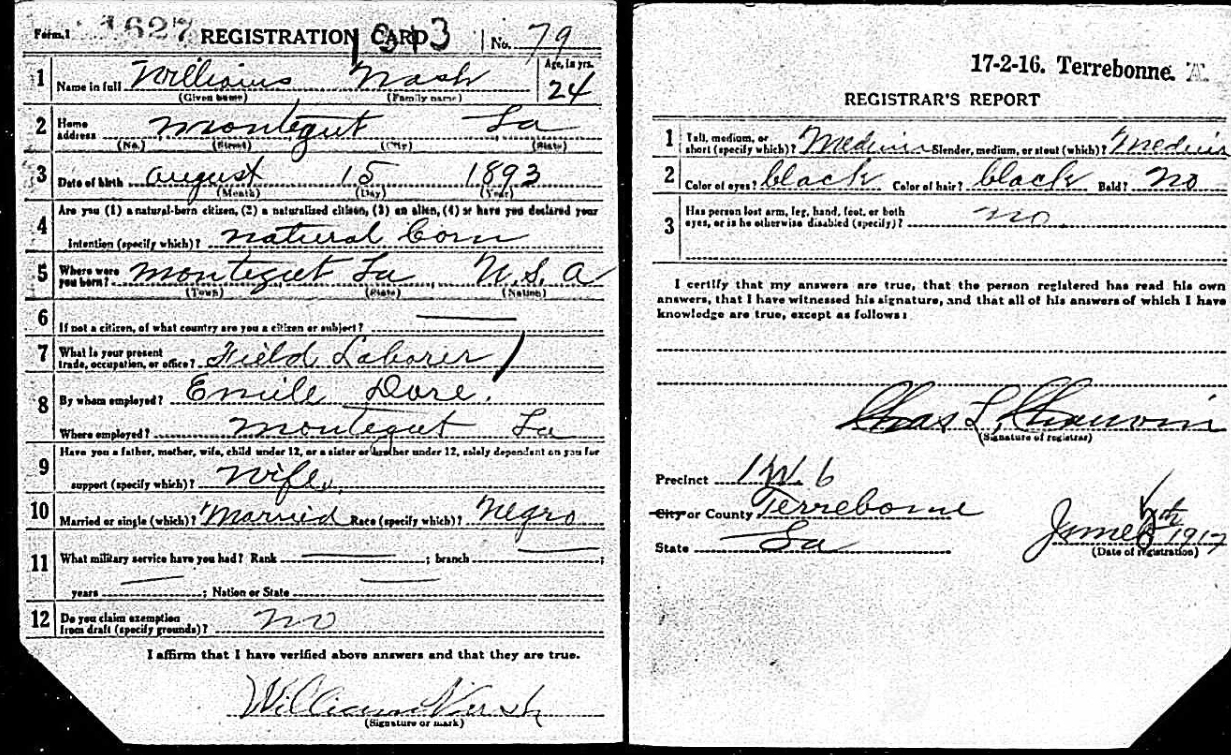 Form 1 1627 REGISTRATION CARD 1313 No. 79
1 Name in full Williams Nash Age, in yrs.
(Given name) (Family name) 24
2 Home address Montegut La
(No.) (Street) (City) (State)
3 Date of birth August 15 1893
(Month) (Day) (Year)
4 Are you (1) a natural-born citizen, (2) a naturalized citizen, (3) an alien, (4) or have you declared your
intention (specify which)? natural born
5 Where were you born? Montegut La U.S.A
(Town) (State) (Nation)
6 If not a citizen, of what country are you a citizen or subject?
7 What is your present trade, occupation, or office? Field Laborer
8 By whom employed? Emile Dore.
Where employed? Montegut La
9 Have you a father, mother, wife, child under 12, or a sister or brother under 12, solely dependent on you for
support (specify which)? Wife
10 Married or single (which)? Married Race (specify which)? Negro
11 What military service have you had? Rank ; branch ;
years ; Nation or State
12 Do you claim exemption from draft (specify grounds)? no
I affirm that I have verified above answers and that they are true.
William Nash
(Signature or mark)
17-2-16. Terrebonne. A.
REGISTRAR'S REPORT
1 Tall, medium, or short (specify which)? Medium Slender, medium, or stout (which)? Medium
2 Color of eyes? black Color of hair? black Bald? no
3 Has person lost arm, leg, hand, foot, or both
eyes, or is he otherwise disabled (specify)? no
I certify that my answers are true, that the person registered has read his own
answers, that I have witnessed his signature, and that all of his answers of which I have
knowledge are true, except as follows:
Chas L. Chauvin
(Signature of registrar)
Precinct 1 W. 6
City or County Terrebonne
State La June 5th 1917
(Date of registration)